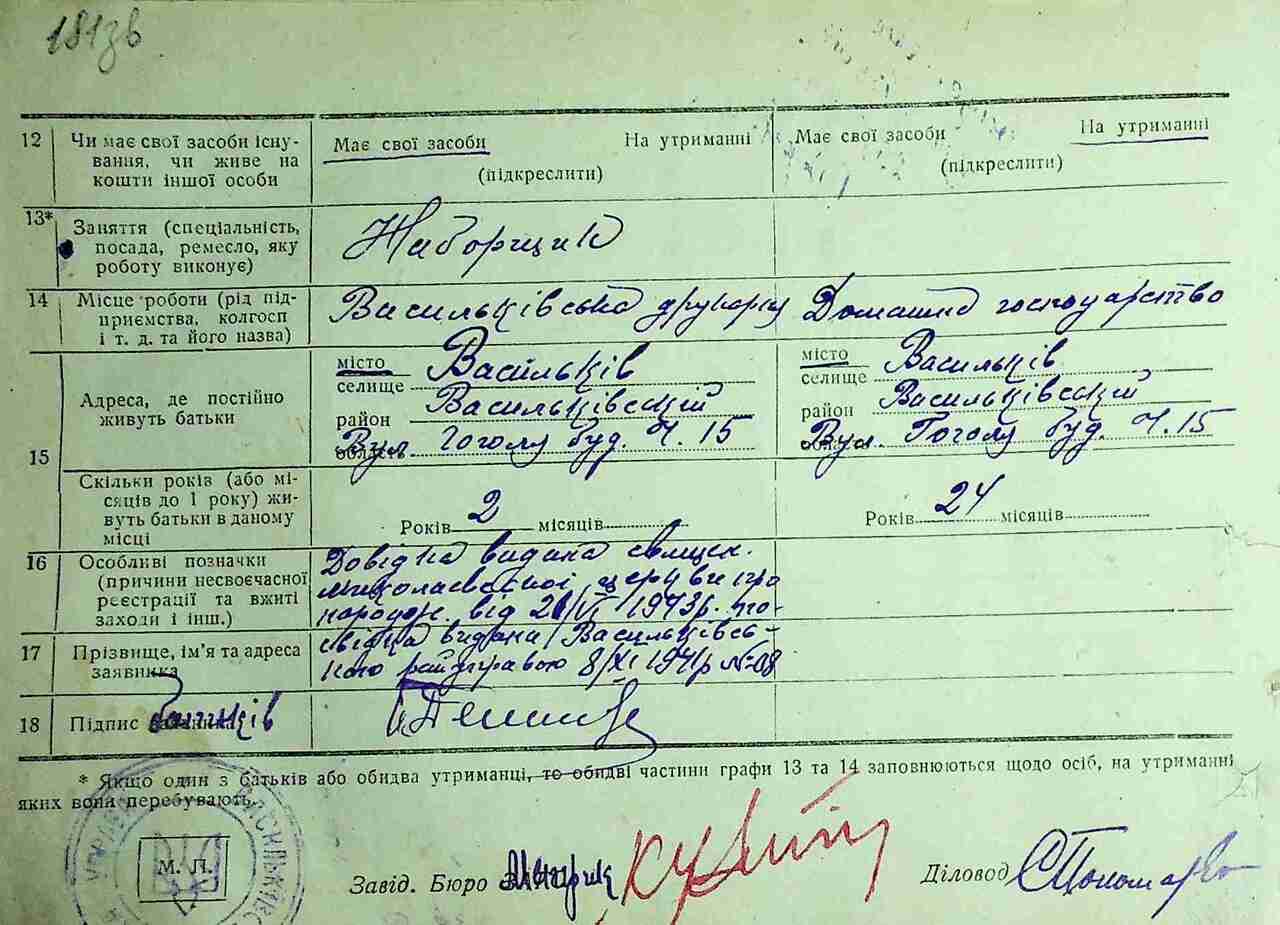 181зв
12 Чи має свої засоби існу-
вання, чи живе на
кошти іншої особи
Має свої засоби На утриманні
(підкреслити)
Має свої засоби На утриманні
(підкреслити)
13* Заняття (спеціальність,
посада, ремесло, яку
роботу виконує)
Наборщик
14 Місце роботи (рід під-
приємства, колгосп
і т. д. та його назва)
Васильківська друкарня
Домашнє господарство
15 Адреса, де постійно
живуть батьки
місто Васильків
селище
район Васильківський
область Вул. Гоголя буд. Ч. 15
місто Васильків
селище
район Васильківський
область Вул. Гоголя буд. Ч. 15
Скільки років (або мі-
сяців до 1 року) жи-
вуть батьки в даному
місці
Років 2 місяців
Років 24 місяців
16 Особливі позначки
(причини несвоєчасної
реєстрації та вжиті
заходи і інш.)
Довідка видана священ.
Миколаевської церкви про
народж. від 1943р. по-
17 Прізвище, ім'я та адреса
заявника
свідка видани Васильківсь-
кого райуправою 8/XI 1941р №08
18 Підпис батьків
* Якщо один з батьків або обидва утриманці, то обидві частини графи 13 та 14 заповнюються щодо осіб, на утриманні
яких вони перебувають.
М. П.
Завід. Бюро
Діловод СПономар